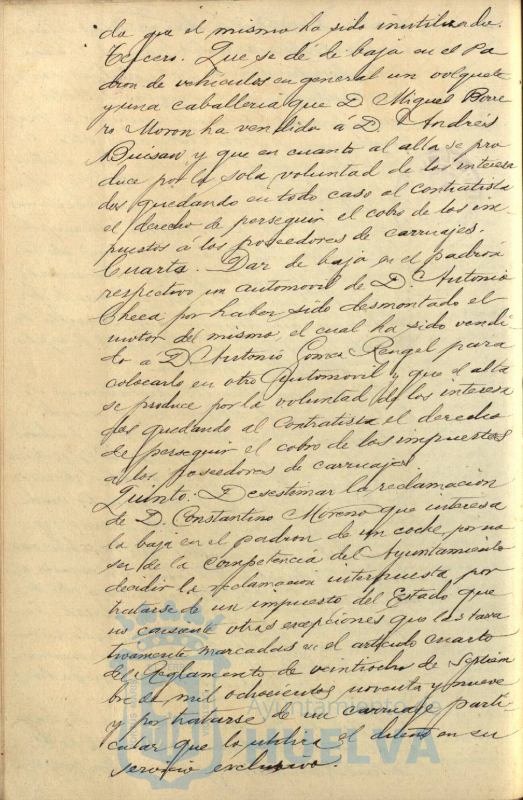 do que el mismo ha sido inutilizado.
Tercero. Que se dé de baja en el Pa
dron de vehículos en general un volquete
y una caballería que D. Miguel Borre
ro Moron ha vendido á D. Andrés
Buisan y que en cuanto al alta se pro
duce por la sola voluntad de los interesa
dos quedando en todo caso al contratista
el derecho de perseguir el cobro de los im
puestos á los poseedores de carruajes.
Cuarto. Dar de baja en el padrón
respectivo un automovil de D. Antonio
Checa por haber sido desmontado el
motor del mismo, el cual ha sido vendi
do a D. Antonio Gomez Rengel para
colocarlo en otro Automovil y que el alta
se produce por la voluntad de los interesa
dos quedando al Contratista el derecho
de perseguir el cobro de los impuestos
a los poseedores de carruajes.
Quinto. Desestimar la reclamación
de D. Constantino Moreno que interesa
la baja en el padron de un coche, por no
ser de la competencia del Ayuntamiento
decidir la reclamación interpuesta por
tratarse de un impuesto del Estado que
no consiente otras excepciones que las taxa
tivamente marcadas en el artículo cuarto
del Reglamento de veintiocho de Septiem
bre de mil ochocientos noventa y nueve
y por tratarse de un carruaje parti
cular que lo utiliza el dueño en su
servicio exclusivo.
Ayuntamiento de
HUELVA